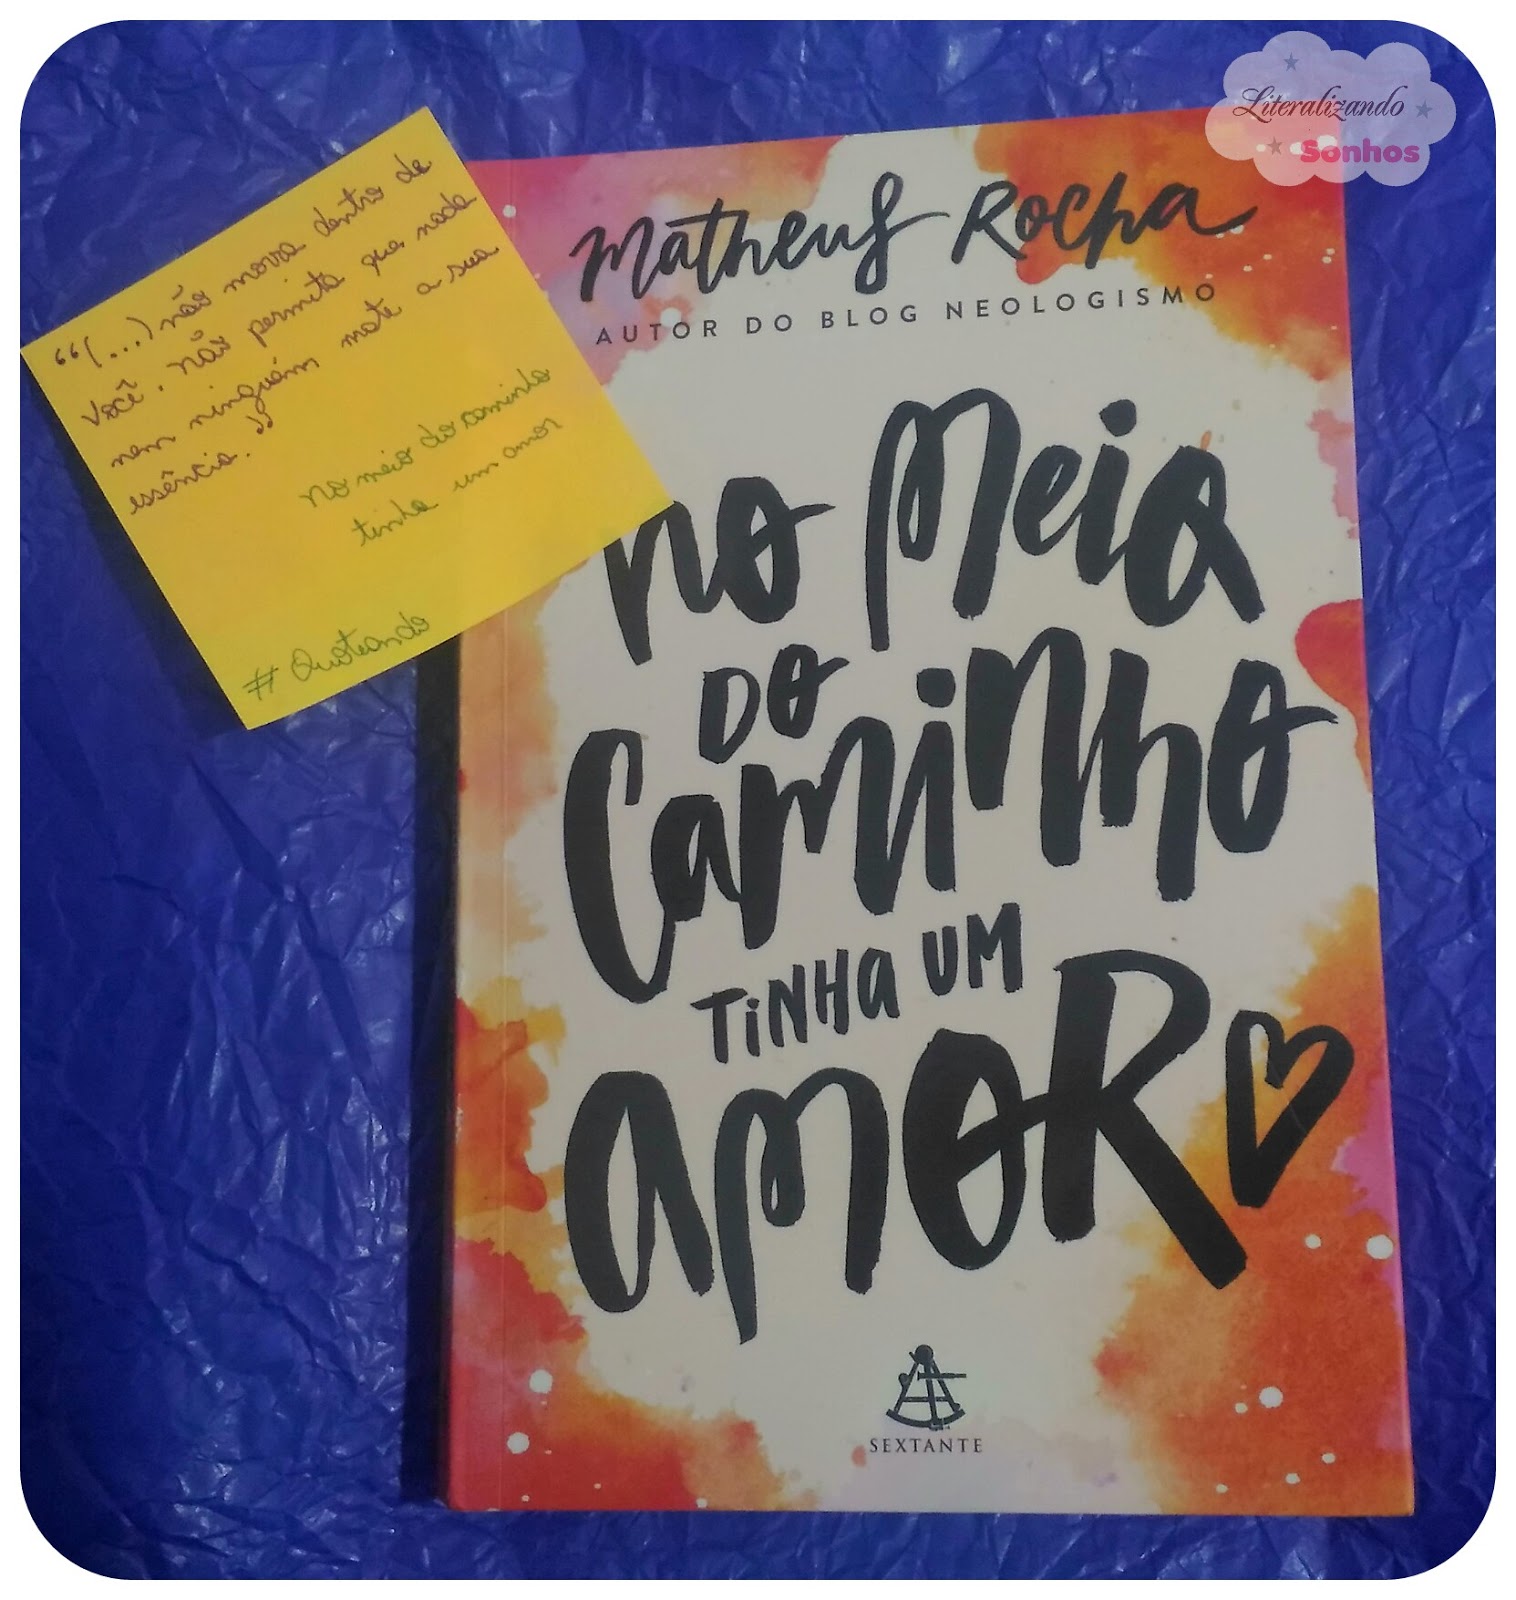 Literalizando
Sonhos
"(...) não morra dentro de
você. Não permita que nada
nem ninguém mate a sua
essência."
No meio do caminho
tinha um amor
# Quoteando
Matheus Rocha
AUTOR DO BLOG NEOLOGISMO
No Meio
DO
Caminho
TINHA UM
AMOR
SEXTANTE